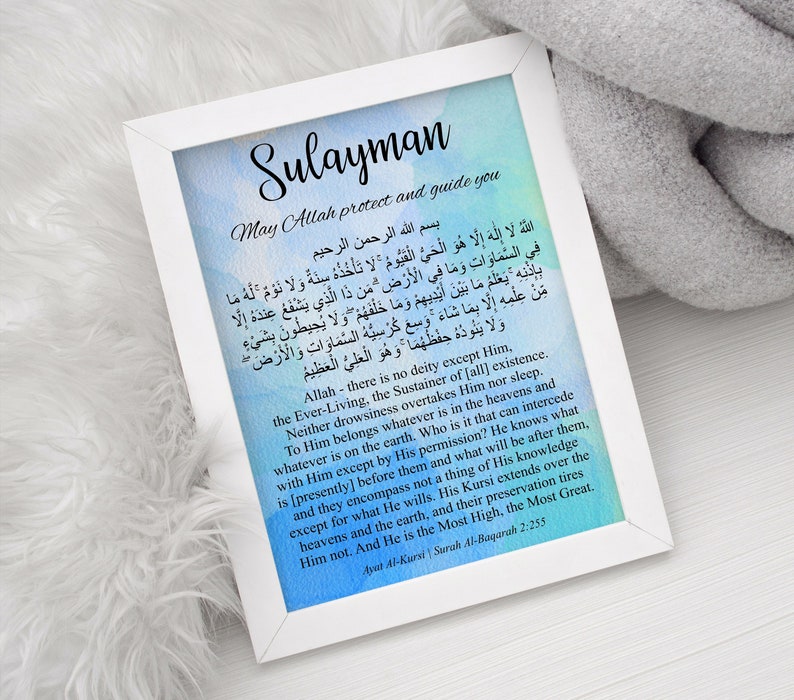 Sulayman
May Allah protect and guide you
بسم الله الرحمن الرحيم
اللَّهُ لَا إِلَٰهَ إِلَّا هُوَ الْحَيُّ الْقَيُّومُ ۚ لَا تَأْخُذُهُ سِنَةٌ وَلَا نَوْمٌ ۚ لَّهُ مَا
فِي السَّمَاوَاتِ وَمَا فِي الْأَرْضِ ۗ مَن ذَا الَّذِي يَشْفَعُ عِندَهُ إِلَّا
بِإِذْنِهِ ۚ يَعْلَمُ مَا بَيْنَ أَيْدِيهِمْ وَمَا خَلْفَهُمْ ۖ وَلَا يُحِيطُونَ بِشَيْءٍ
مِّنْ عِلْمِهِ إِلَّا بِمَا شَاءَ ۚ وَسِعَ كُرْسِيُّهُ السَّمَاوَاتِ وَالْأَرْضَ ۖ
وَلَا يَئُودُهُ حِفْظُهُمَا ۚ وَهُوَ الْعَلِيُّ الْعَظِيمُ
Allah - there is no deity except Him,
the Ever-Living, the Sustainer of [all] existence.
Neither drowsiness overtakes Him nor sleep.
To Him belongs whatever is in the heavens and
whatever is on the earth. Who is it that can intercede
with Him except by His permission? He knows what
is [presently] before them and what will be after them,
and they encompass not a thing of His knowledge
except for what He wills. His Kursi extends over the
heavens and the earth, and their preservation tires
Him not. And He is the Most High, the Most Great.
Ayat Al-Kursi | Surah Al-Baqarah 2:255